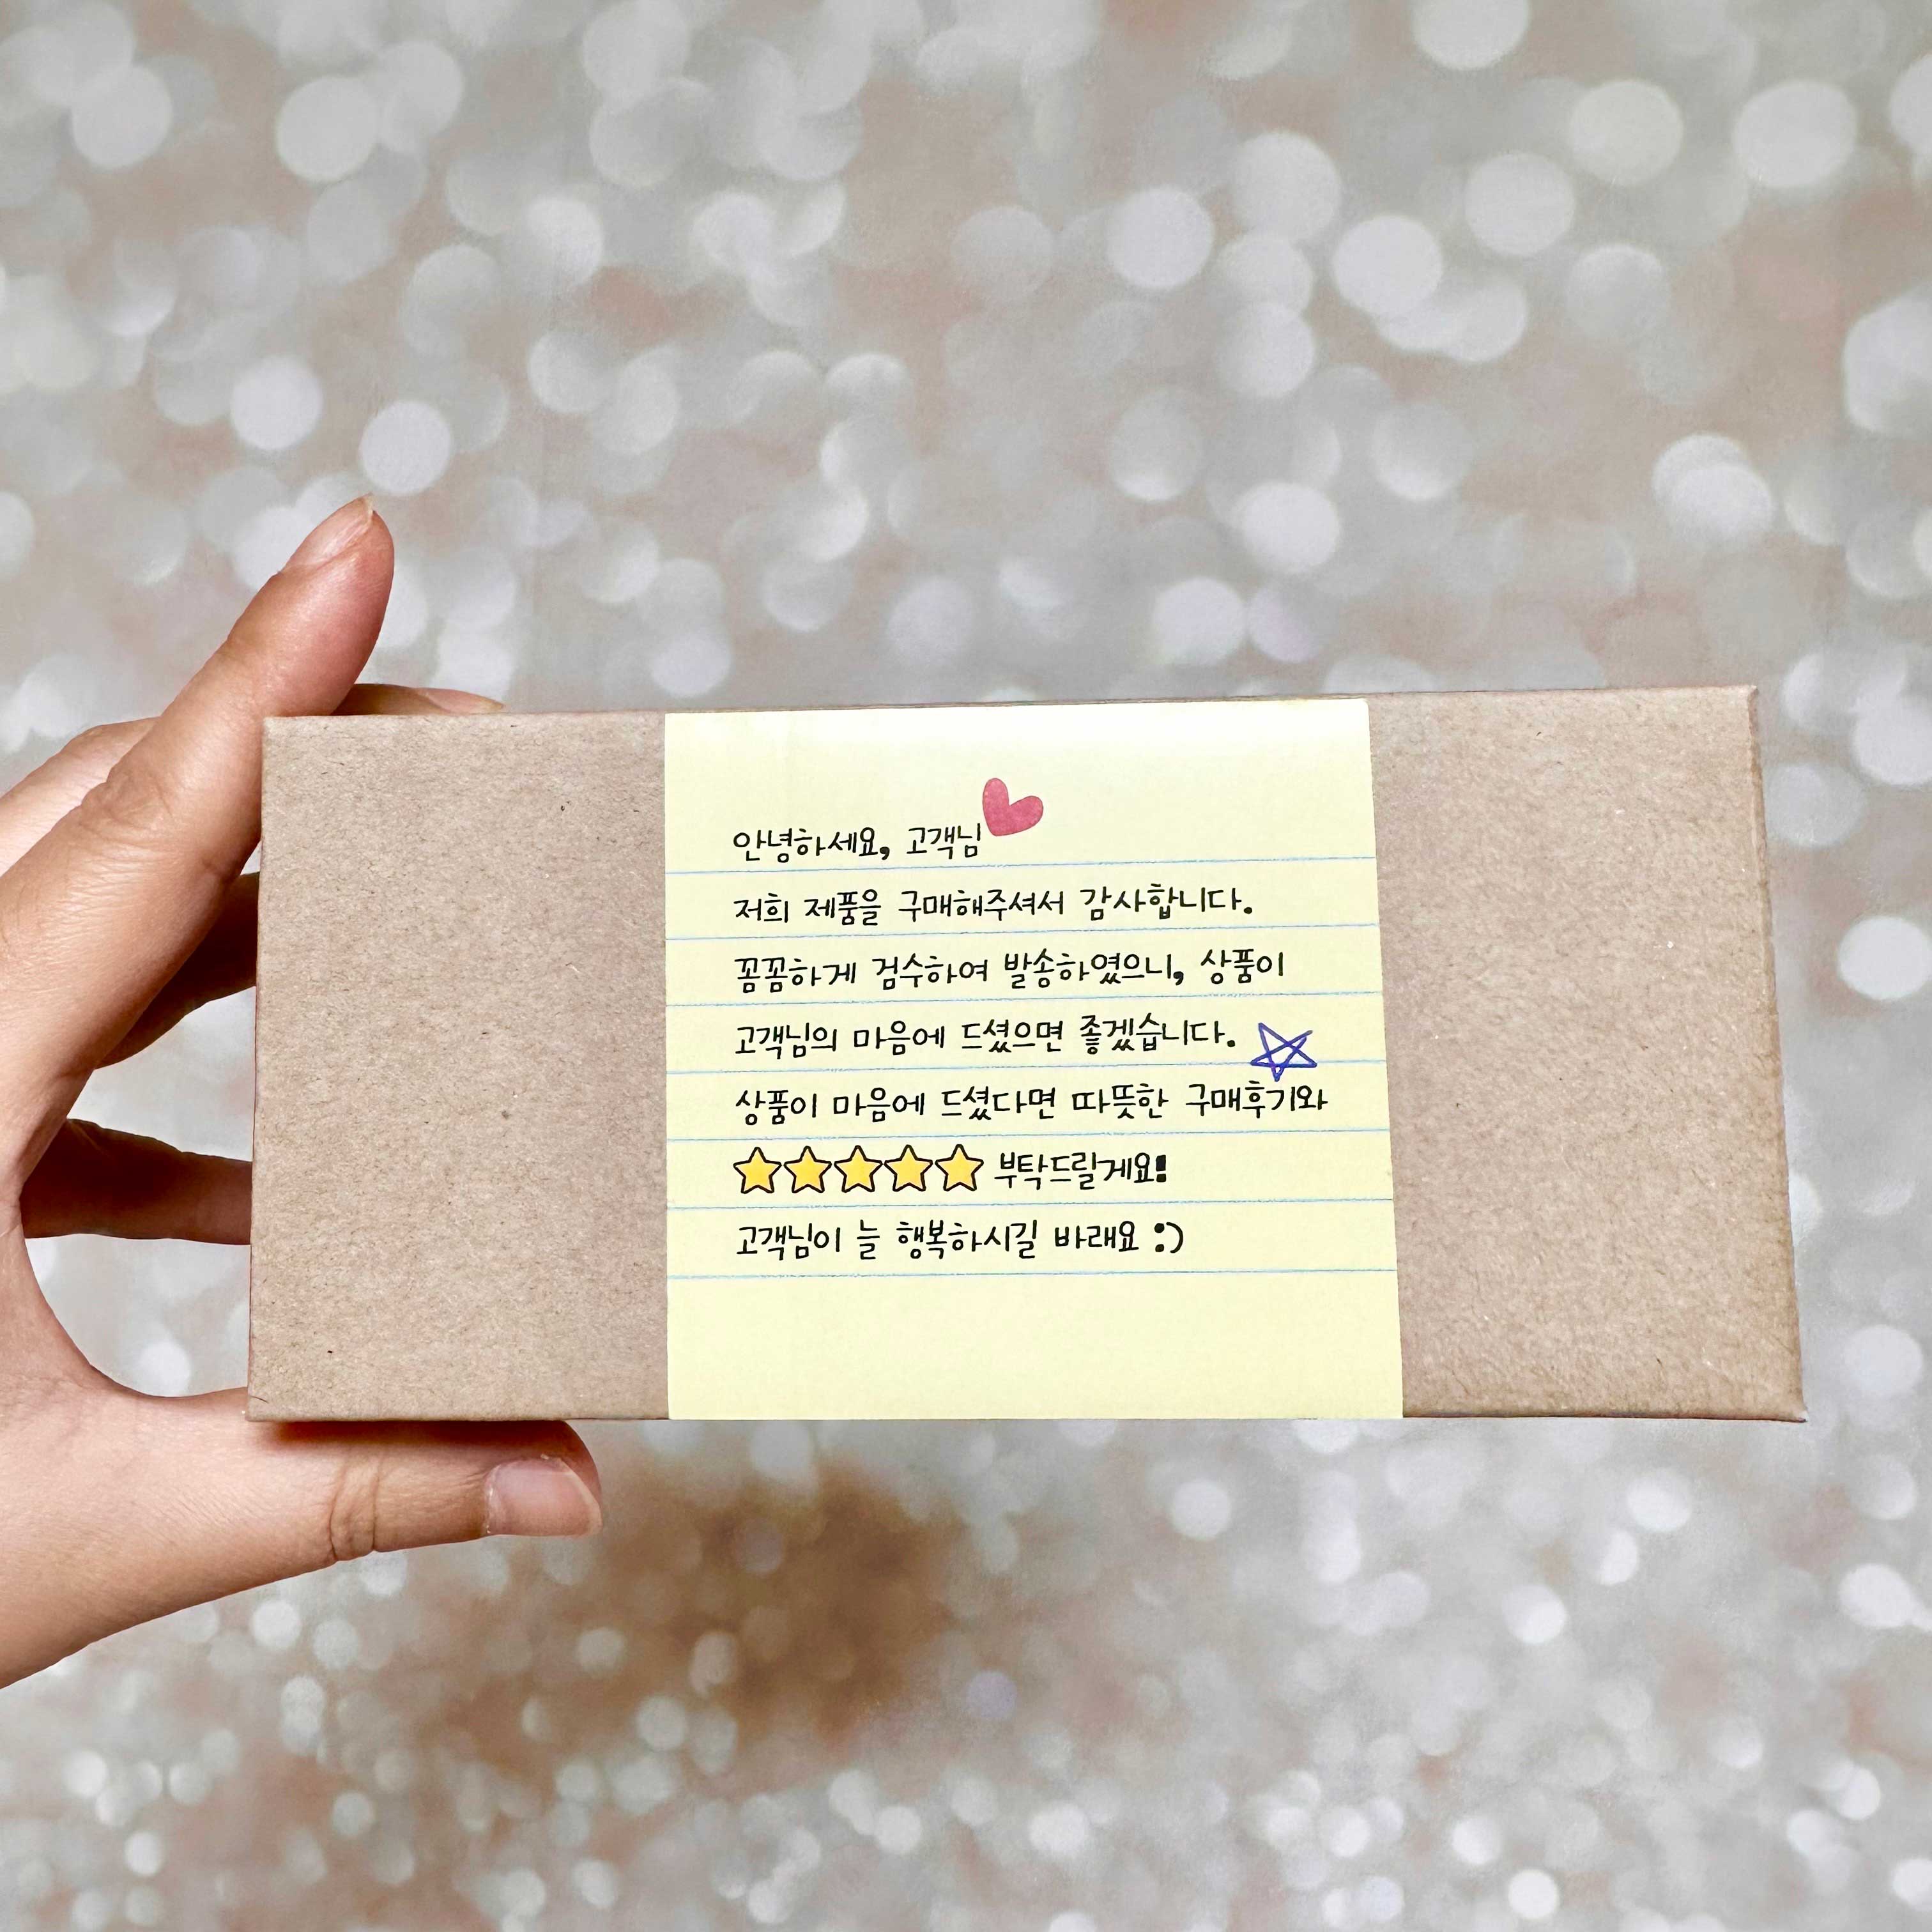 안녕하세요, 고객님
저희 제품을 구매해주셔서 감사합니다.
꼼꼼하게 검수하여 발송하였으니, 상품이
고객님의 마음에 드셨으면 좋겠습니다.
상품이 마음에 드셨다면 따뜻한 구매후기와
⭐⭐⭐⭐⭐ 부탁드릴게요!
고객님이 늘 행복하시길 바래요 :)